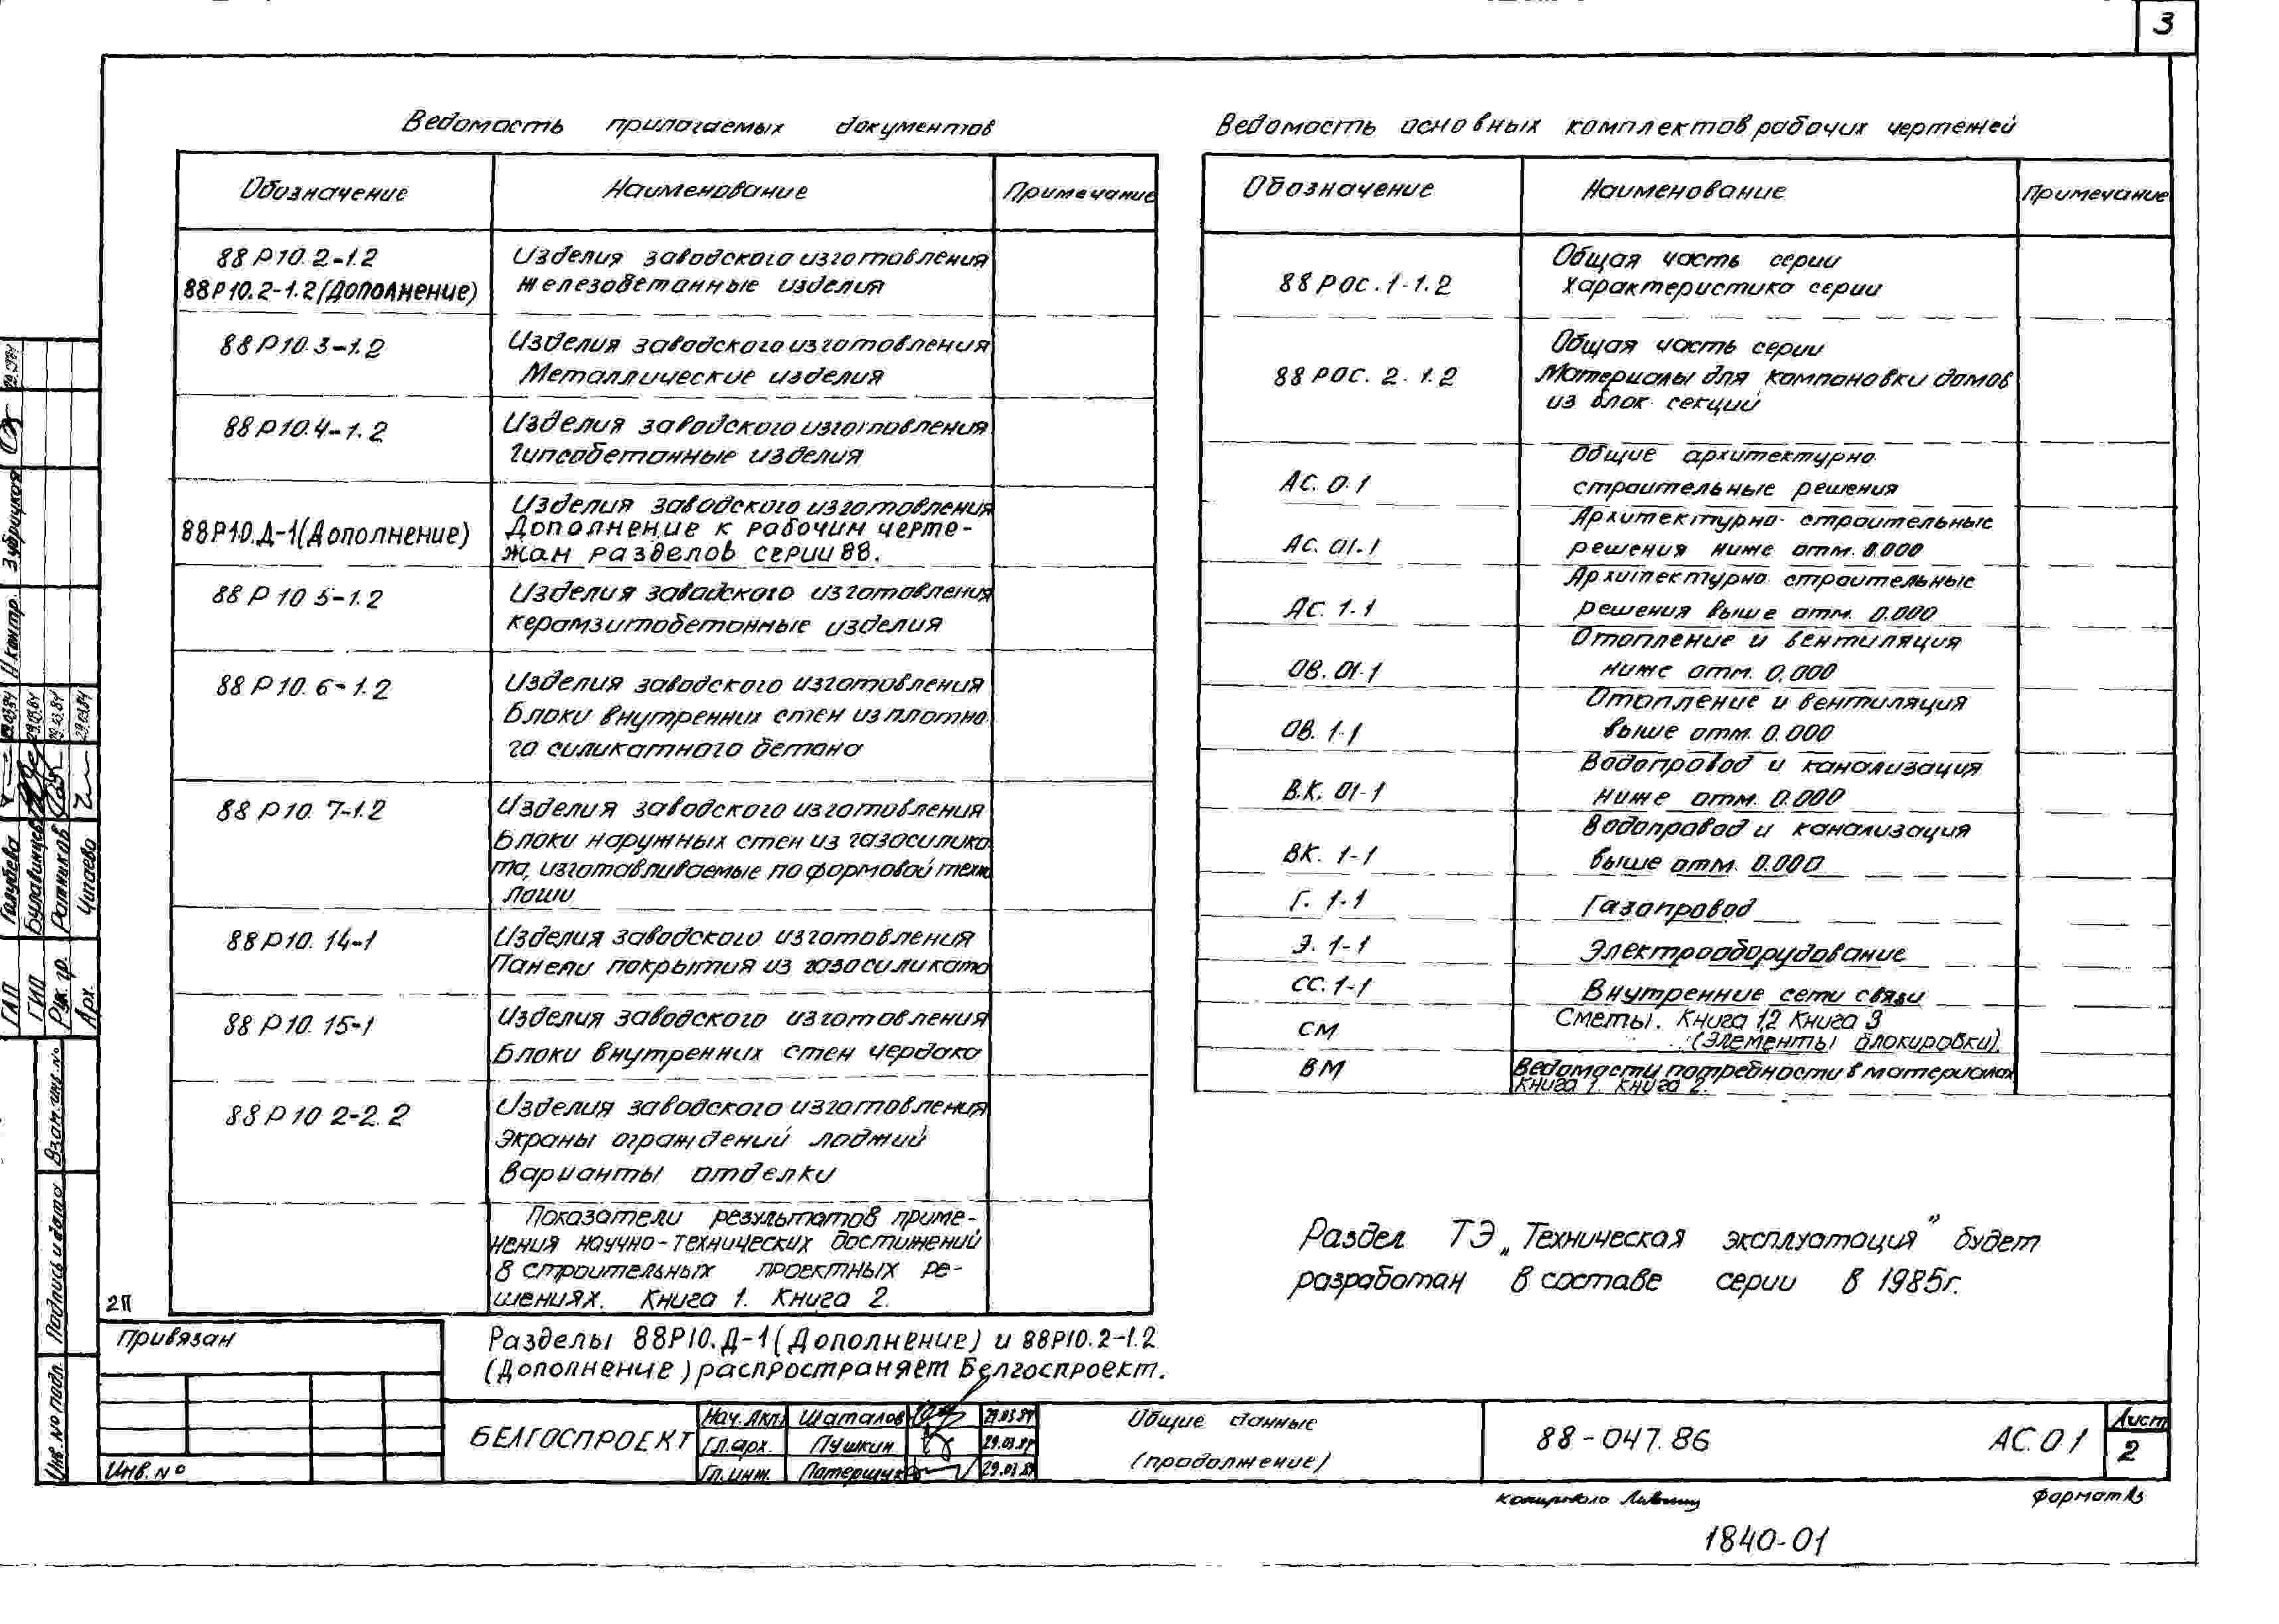 3
Ведомость прилагаемых документов
Обозначение Наименование Примечание
88Р10.2-1.2 Изделия заводского изготовления
88Р10.2-1.2 (Дополнение) железобетонные изделия
88Р10.3-1.2 Изделия заводского изготовления
Металлические изделия
88Р10.4-1.2 Изделия заводского изготовления
Гипсобетонные изделия
Изделия заводского изготовления
88Р10.Д-1(Дополнение) Дополнение к рабочим черте-
жам разделов серии 88.
88Р10 5-1.2 Изделия заводского изготовления
керамзитобетонные изделия
88Р10.6-1.2 Изделия заводского изготовления
Блоки внутренних стен из плотно
го силикатного бетона
88Р10.7-1.2 Изделия заводского изготовления
Блоки наружных стен из газосилика
та, изготавливаемые по формовой техно
логии
88Р10.14-1 Изделия заводского изготовления
Панели покрытия из газосиликата
88Р10.15-1 Изделия заводского изготовления
Блоки внутренних стен чердака
88Р10 2-2.2 Изделия заводского изготовления
Экраны ограждений лоджий
Варианты отделки
Показатели результатов приме-
нения научно-технических достижений
в строительных проектных ре-
шениях. Книга 1. Книга 2.
Ведомость основных комплектов рабочих чертежей
Обозначение Наименование Примечание
Общая часть серии
88Р0С.1-1.2 Характеристика серии
Общая часть серии
88Р0С.2.1.2 Материалы для компановки домов
из блок секций
Общие архитектурно
АС.0.1 строительные решения
Архитектурно-строительные
АС.01-1 решения ниже отм. 0.000
Архитектурно строительные
АС.1-1 решения выше отм. 0.000
Отопление и вентиляция
ОВ.01-1 ниже отм. 0.000
Отопление и вентиляция
ОВ.1-1 выше отм. 0.000
Водопровод и канализация
В.К. 01-1 ниже отм. 0.000
Водопровод и канализация
ВК. 1-1 выше отм. 0.000
Г. 1-1 Газопровод
Э. 1-1 Электрооборудование
СС.1-1 Внутренние сети связи
СМ Сметы. Книга 1,2 Книга 3
(Элементы блокировки).
ВМ Ведомости потребности в материалах
Книга 1. Книга 2.
Раздел ТЭ „Техническая эксплуатация" будет
разработан в составе серии в 1985г.
Разделы 88Р10.Д-1 (Дополнение) и 88Р10.2-1.2
(Дополнение) распространяет Белгоспроект.
2П
Привязан
Инв. №
БЕЛГОСПРОЕКТ
Нач. АКП Шаталов 29.03.84
Гл.арх. Пушкин 29.03.84
Гл.инж. 29.03.84
Общие данные
(продолжение)
88-047.86 АС.0.1
Лист
2
Копировала
Формат А3
1840-01
Н.контр. Зубрицкая
ГАП Голубева 29.03.84
ГИП 29.03.84
Рук. гр. Ротников 29.03.84
Арх. Чипаева 29.03.84
Взам. инв. №
Подпись и дата
Инв. № подл.